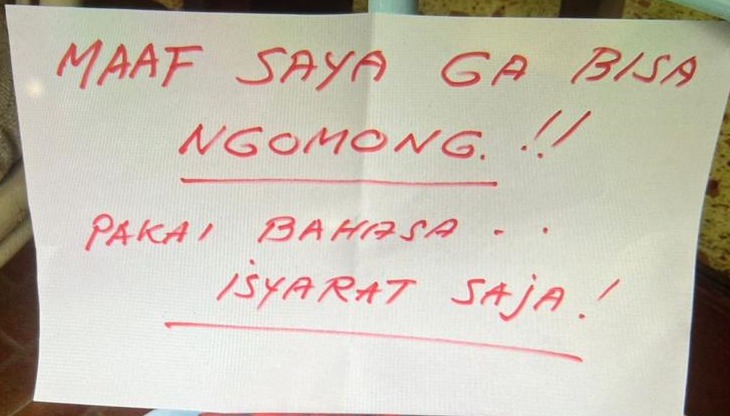 MAAF SAYA GA BISA
NGOMONG. !!
PAKAI BAHASA . .
ISYARAT SAJA.!